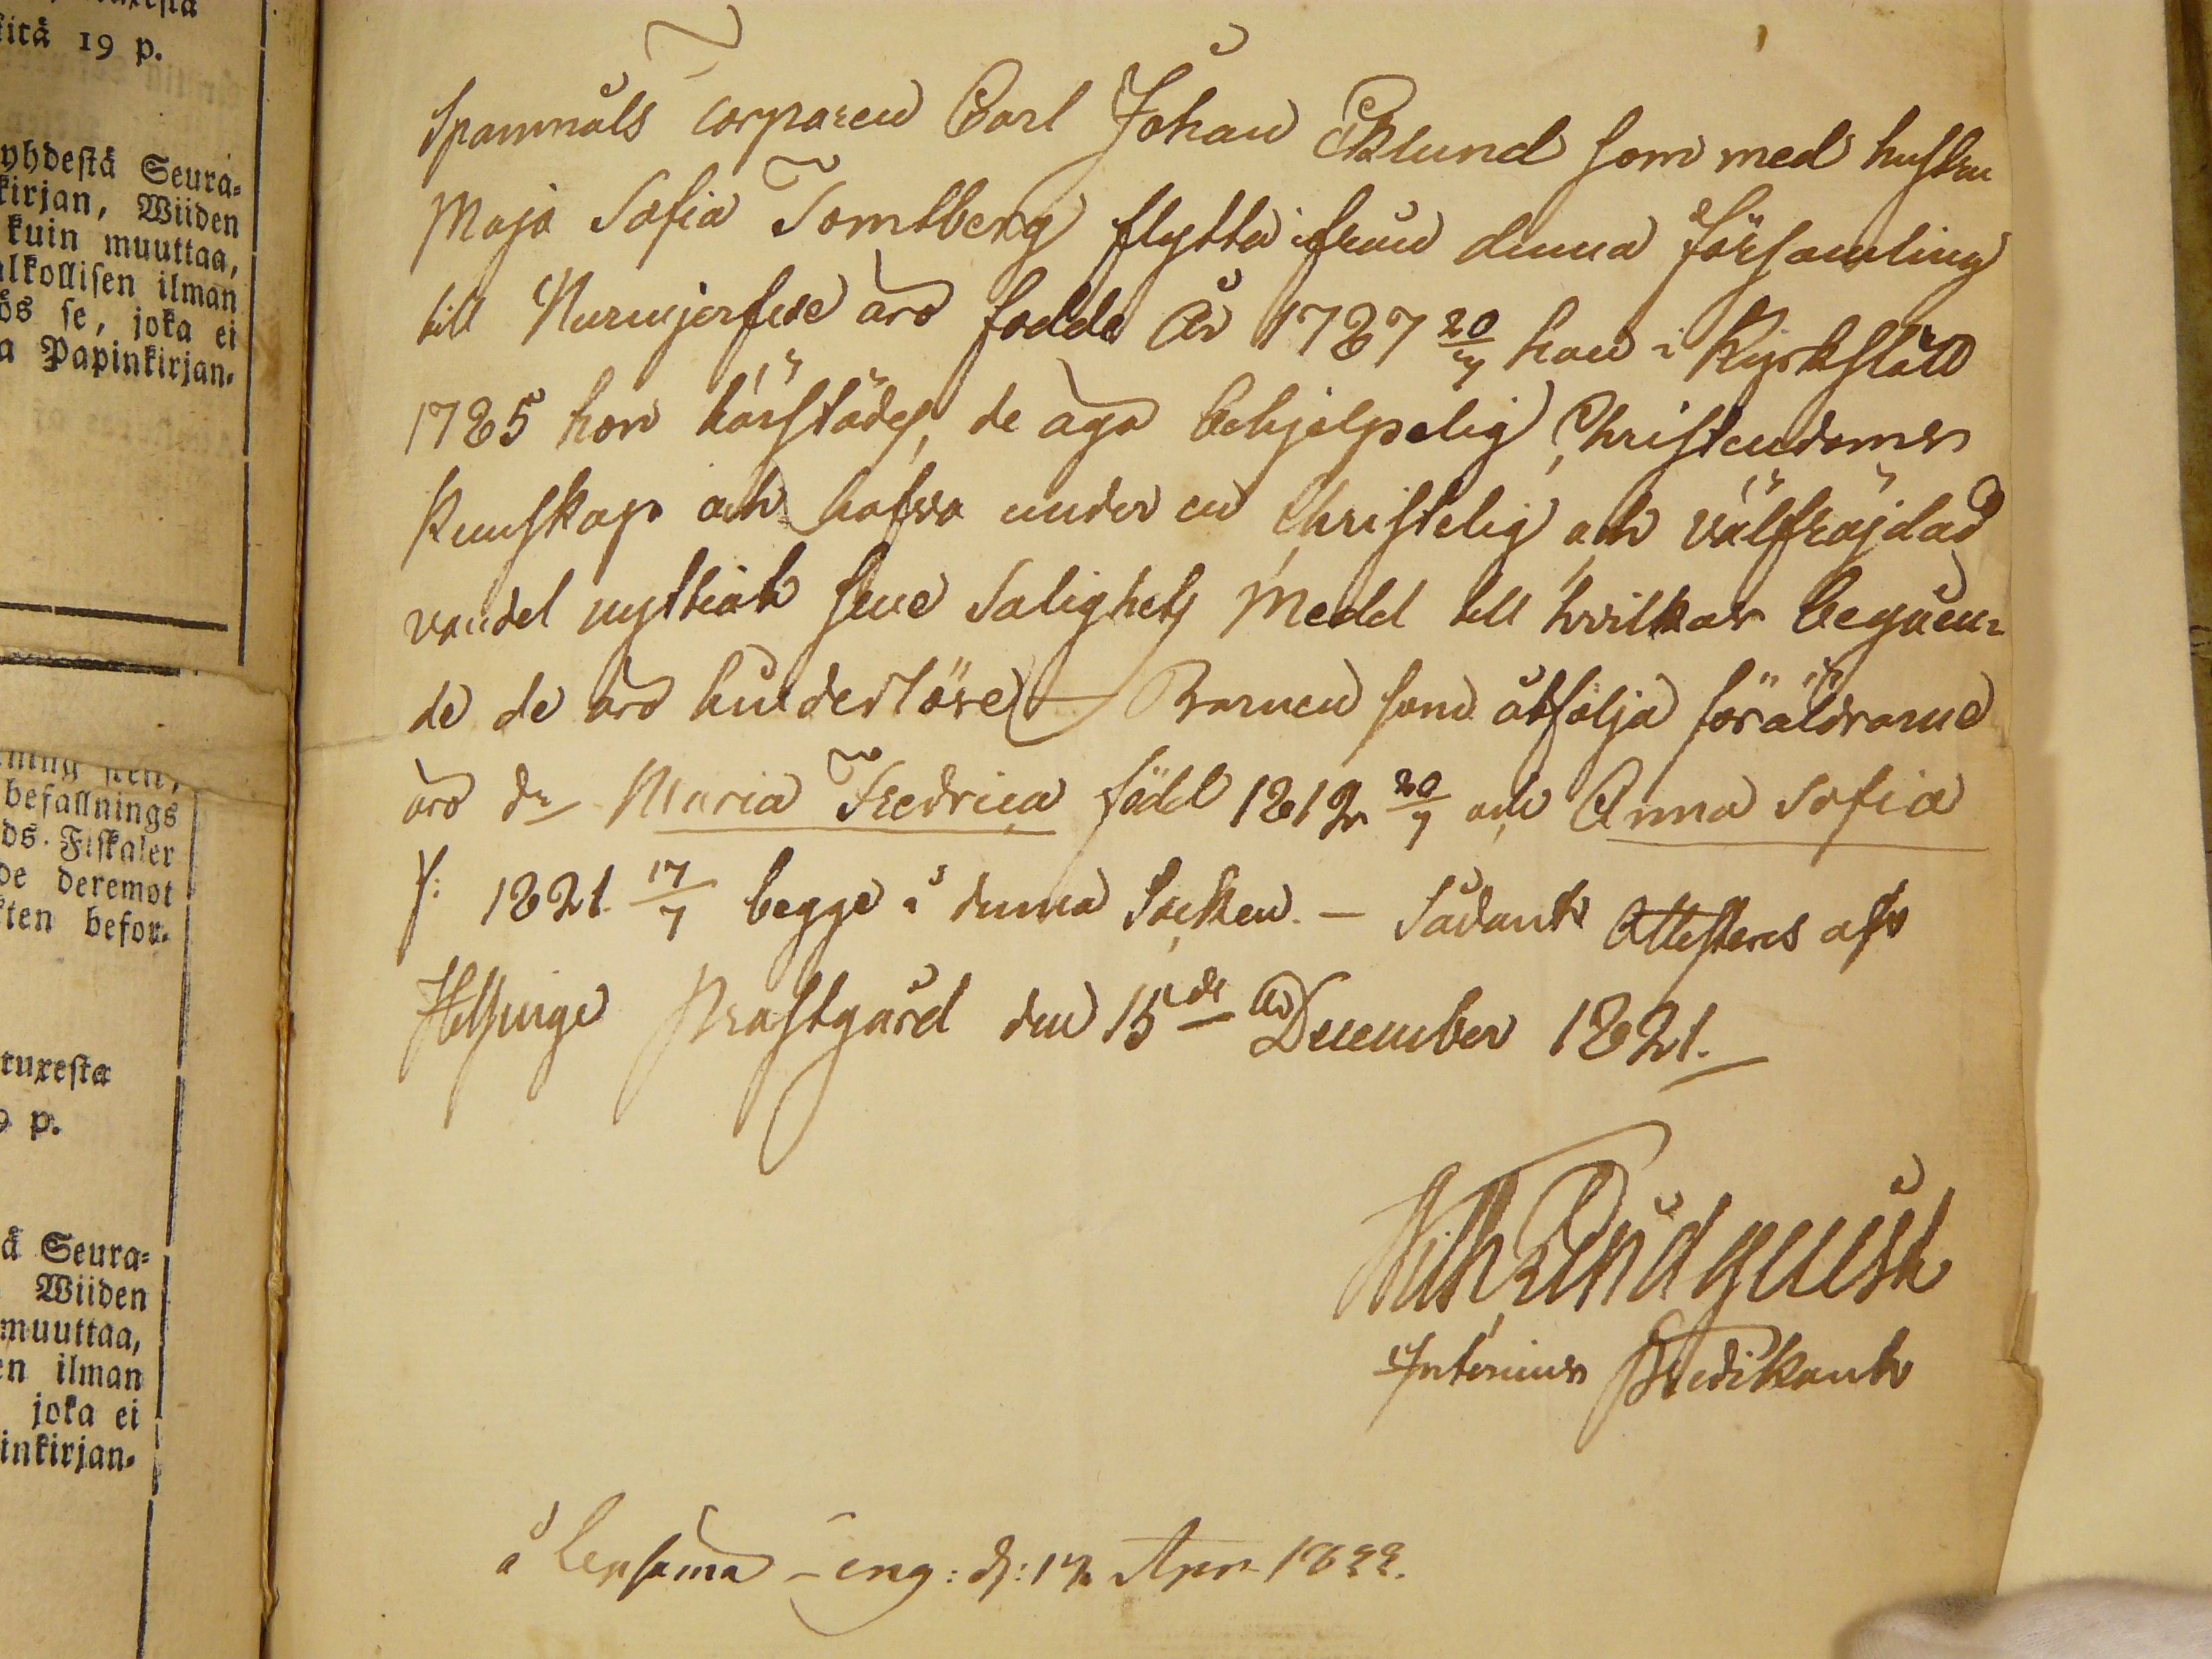 sitä 19 p.
yhdestä Seura-
kirjan, Wiiden
kuin muuttaa,
alkollisen ilman
ös se, joka ei
a Papinkirjan-
befallnings
ds. Fiskaler
de deremot
kten befor-
tuxesta
9 p.
ä Seura-
Wiiden
muuttaa,
en ilman
joka ei
inkirjan-
Spanmåls torparen Carl Johan Eklund som med hustru
Maja Sofia Tomtberg flytta ifrån denna församling
till Nurmijerfwe äro födde År 1787 20/4 han i Kyrkslätt
1785 hon härstädes, de äga behjelpelig Christendoms
Kunskap och hafwa under en Christelig och välfräjdad
vandel nyttiat sine Salighets Medel till hvilkas begåen-
de de äro hinderlöse – Barnen som åtfölja föräldrarne
äro dr Maria Fredrica född 1812 20/7 och Anna Sofia
f: 1821 17/7 begge i denna Socken. – Sådant Attesteras af
Helsinge Prästgård den 15de December 1821.
Lindquist
Interims Predikant
å Lepsama – ing: d: 12 Apr 1822.